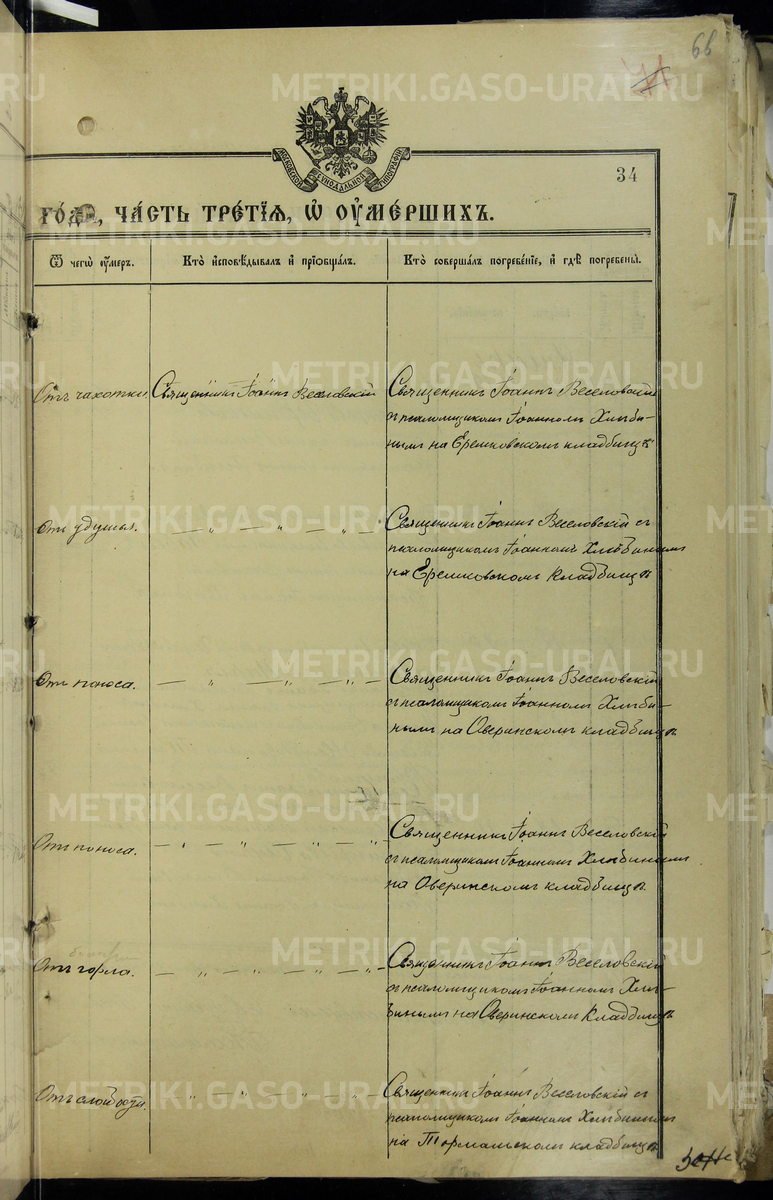 66
МОСКОВСКОЙ СУНОДАЛЬНОЙ ТИПОГРАФІИ
34
го́да, ча́сть тре́тїѧ, ѡ҆ ᲂу҆ме́ршихъ.
Ѿ чегѡ̀ ᲂу҆́меръ.
Кто̀ и҆сповѣ́дывалъ и҆ прїѡбща́лъ.
Кто̀ соверша́лъ погребе́нїе, и҆ гдѣ̀ погребены̀.
Отъ чахотки
Священникъ Іоаннъ Веселовскій
Священникъ Іоаннъ Веселовскій
съ псаломщикомъ Іоанномъ Хлыби-
нымъ на Еремковскомъ кладбищѣ
Отъ удушья.
— „ — „ — „ —
Священникъ Іоаннъ Веселовскій съ
псаломщикомъ Іоанномъ Хлыбинымъ
на Еремковскомъ кладбищѣ
Отъ поноса.
— „ — „ — „ —
Священникъ Іоаннъ Веселовскій
съ псаломщикомъ Іоанномъ Хлыби-
нымъ на Оверинскомъ кладбищѣ
Отъ поноса.
— „ — „ — „ —
Священникъ Іоаннъ Веселовскій
съ псаломщикомъ Іоанномъ Хлыбинымъ
на Оверинскомъ кладбищѣ.
Отъ горла.
— „ — „ — „ —
Священникъ Іоаннъ Веселовскій
съ псаломщикомъ Іоанномъ Хлы-
бинымъ на Оверинскомъ кладбищѣ
Отъ слабости.
„ — „ — „ — „ —
Священникъ Іоаннъ Веселовскій съ
псаломщикомъ Іоанномъ Хлыбинымъ
на Тормальскомъ кладбищѣ
METRIKI.GASO-URAL.RU